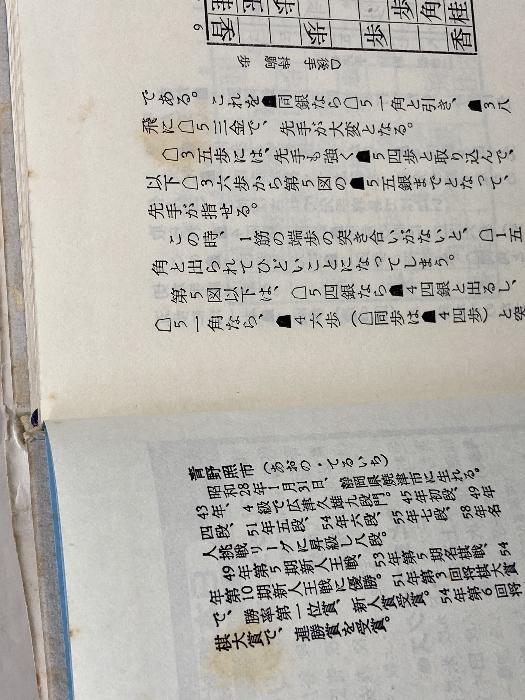 桂 角 歩
9 香 歩 歩 香
△後手 持駒 歩
である。これを▲同銀なら△5一角と引き、▲3八
飛に△5三金で、先手が大変となる。
△3五歩には、先手も強く▲5四歩と取り込んで、
以下△3六歩から第5図の▲5五銀までとなって、
先手が指せる。
この時、1筋の端歩の突き合いがないと、△1五
角と出られてひどいことになってしまう。
第5図以下は、△5四銀なら▲4四銀と出るし、
△5一角なら、▲4六歩(△同歩は▲4四歩)と突
青野照市(あおの・てるいち)
昭和28年1月31日、静岡県焼津市に生れる。
43年、4級で広津久雄九段門。45年初段、49年
四段、51年五段、54年六段、55年七段、58年名
人挑戦リーグに昇級し八段。
49年第5期新人王戦、53年第5期名棋戦、54
年第10期新人王戦に優勝。51年第3回将棋大賞
で、勝率第一位賞、新人賞受賞。54年第6回将
棋大賞で、連勝賞を受賞。